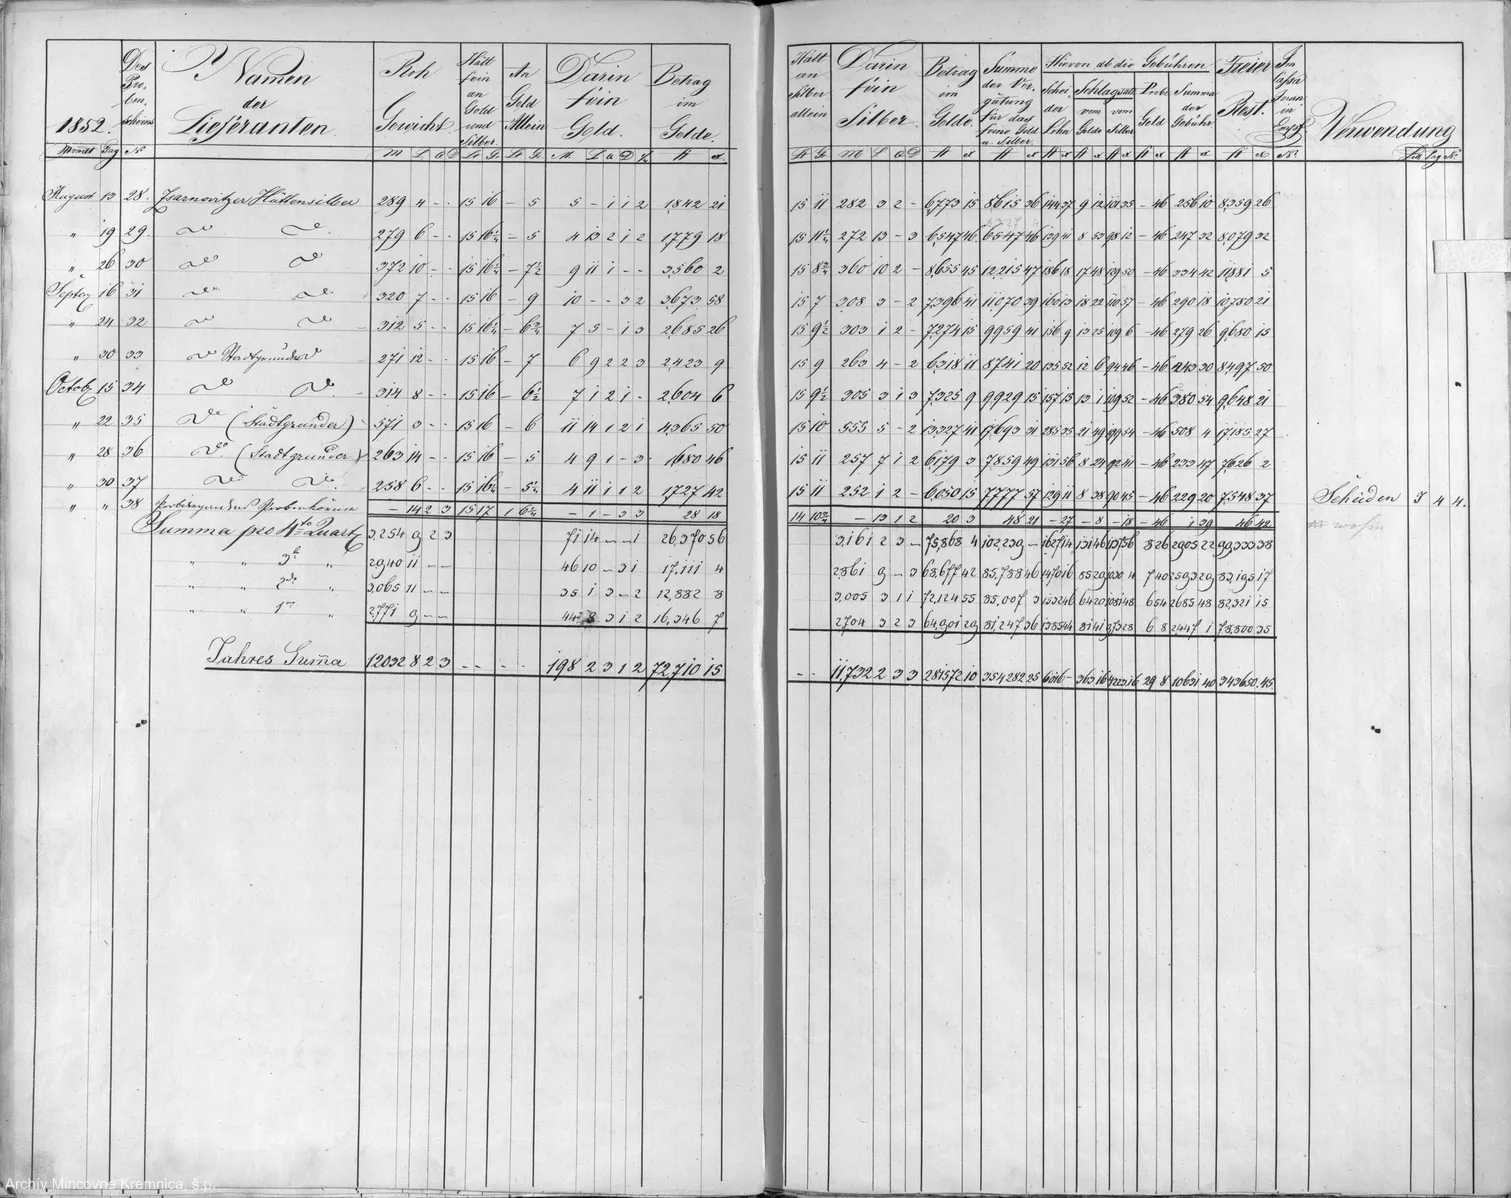 1852.
Monat Tag
Des Probenscheins №
Namen der Lieferanten
Roh Gewicht
M L Q D
Hält fein an Gold und Silber
Lt Gr
An Gold Allein
Lt Gr
Darin fein Gold.
M. L Q D
Betrag im Golde.
fl x
Hält an Silber allein
Lt Gr
Darin fein Silber
M L Q D
Betrag im Gelde
fl x
Summe der Vergütung für das feine Gold u. Silber
fl x
Hievon ab die Gebühren
Scheidelohn
fl x
Schlagsatz vom Golde vom Silber
fl x fl x
Probe Geld
fl x
Summa der Gebühr
fl x
Freier Rest.
fl x
№
Verwendung
Pag №
August 13 28. Zsarnovitzer Hüttensilber 289 4 - - 15 16 - 5 5 - 1 1 2 1842 21 15 11 282 3 2 - 6773 15 8615 36 144 37 9 12 101 35 - 46 256 10 8359 26
" 19 29. do do 279 6 - - 15 16½ - 5 4 13 2 1 2 1779 18 15 11½ 272 13 - 3 6547 46 139 41 8 53 98 12 - 46 247 32 8079 32
" 26 30 do do 372 10 - - 15 16½ - 7½ 9 11 1 - - 3560 2 360 10 2 - 8655 45 12,215 47 186 18 17 48 - 46 334 42 11881 5
16 31 do do 320 7 - - 15 16 - 9 10 - - 3 2 3673 58 15 7 308 3 - 2 7396 41 11,070 39 160 13 18 22 110 57 - 46 290 18 10,780 21
" 24 32 do do 312 5 - - 7 5 - 1 3 2685 26 15 9½ 303 1 2 - 7274 15 9959 41 156 9 13 25 109 6 - 46 279 26 9680 15
" 30 33 do 271 12 - - 15 16 - 7 6 9 2 2 3 2423 9 15 9 263 4 - 2 6318 11 8741 20 135 52 12 6 94 46 - 46 243 30 8497 50
Octob. 15 34 do do 314 8 - - 15 16 - 6½ 7 1 2 1 - 2604 6 15 9½ 305 3 1 3 7325 9 9929 15 157 15 13 1 109 52 - 46 9648 21
" 22 35 do (Stadtgrunder) 571 3 - - 15 16 - 6 11 14 1 2 1 4365 50 15 10 555 5 - 2 13327 41 17,693 31 285 35 21 49 199 54 - 46 508 4 17185 27
" 28 36 do (Stadtgrunder) 263 14 - - 15 16 - 5 4 9 1 - 3 1680 46 15 11 257 7 1 2 6179 3 7859 49 131 56 8 24 92 41 - 46 233 47 7626 2
" 30 37 do do 258 6 - - - 5½ 4 11 1 1 2 1727 42 15 11 252 1 2 - 6050 15 7777 57 129 11 8 38 90 45 - 46 229 20 7548 37 Scheiden 3 4 4.
" " 38 - 14 2 3 15 17 1 - 1 - 3 3 28 18 - 13 1 2 20 3 48 21 - 27 - 8 - 18 - 46 1 39 46 42
Summa pro 4ts Quartal 3,254 9 2 3 71 14 - - 1 26,370 56 3,161 2 3 - 75,868 4 102,239 - 1627 14 131 46 8 26 2905 22 99,333 38
" " 3ts " 2940 11 - - 46 10 - 3 1 17,111 4 2861 9 - 3 68,677 42 85,788 46 1470 16 85 29 1030 4 7 40 2593 29 83,195 17
" " 2ts " 3,065 11 - - 35 1 3 - 2 12,882 8 3,005 3 1 1 72,124 55 85,007 3 1532 46 64 20 1081 48 6 54 2685 48 82321 15
" " 1ts " 2,771 9 - - 44 8 3 1 2 16,346 7 2704 3 2 3 64,901 29 81247 36 1385 44 81 41 973 28 6 8 2447 1 78,800 35
Jahres Suma 12032 8 2 3 - - - - 198 2 3 1 2 72,710 15 - - 11,732 2 3 3 281572 10 354282 25 6016 - 363 16 4223 16 29 8 10631 40 343650. 45
Archív Mincovne Kremnica, š.p.